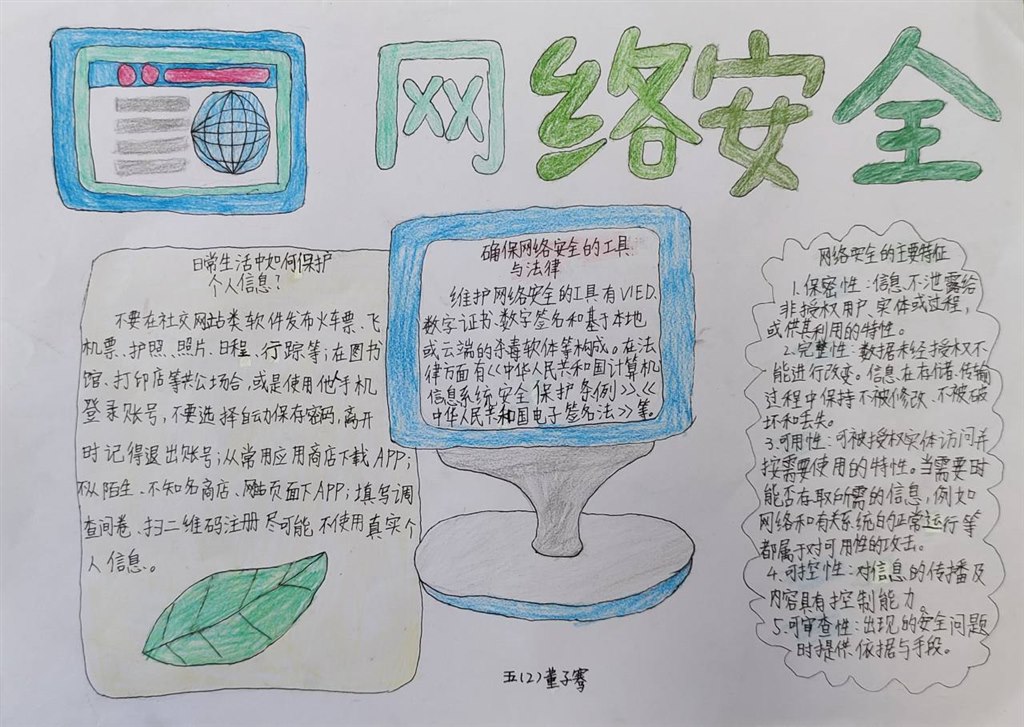 网络安全
日常生活中如何保护
个人信息？
不要在社交网站类软件发布火车票、飞
机票、护照、照片、日程、行踪等；在图书
馆、打印店等共公场合，或是使用他手机
登录账号，不要选择自动保存密码，离开
时记得退出账号；从常用应用商店下载APP；
不从陌生、不知名商店、网站页面下APP；填写调
查问卷、扫二维码注册尽可能，不使用真实个
人信息。
确保网络安全的工具
与法律
维护网络安全的工具有VIED、
数字证书、数字签名和基于本地
或云端的杀毒软体等构成。在法
律方面有《中华人民共和国计算机
信息系统安全保护条例》、《
中华人民共和国电子签名法》等。
网络安全的主要特征
1.保密性：信息不泄露给
非授权用户、实体或过程，
或供其利用的特性。
2.完整性：数据未经授权不
能进行改变。信息在存储、传输
过程中保持不被修改、不被破
坏和丢失。
3.可用性：可被授权实体访问并
按需要使用的特性。当需要时
能否存取所需的信息，例如
网络和有关系统的正常运行等
都属于对可用性的攻击。
4.可控性：对信息的传播及
内容具有控制能力。
5.可审查性：出现的安全问题
时提供依据与手段。
五(2)董子骞